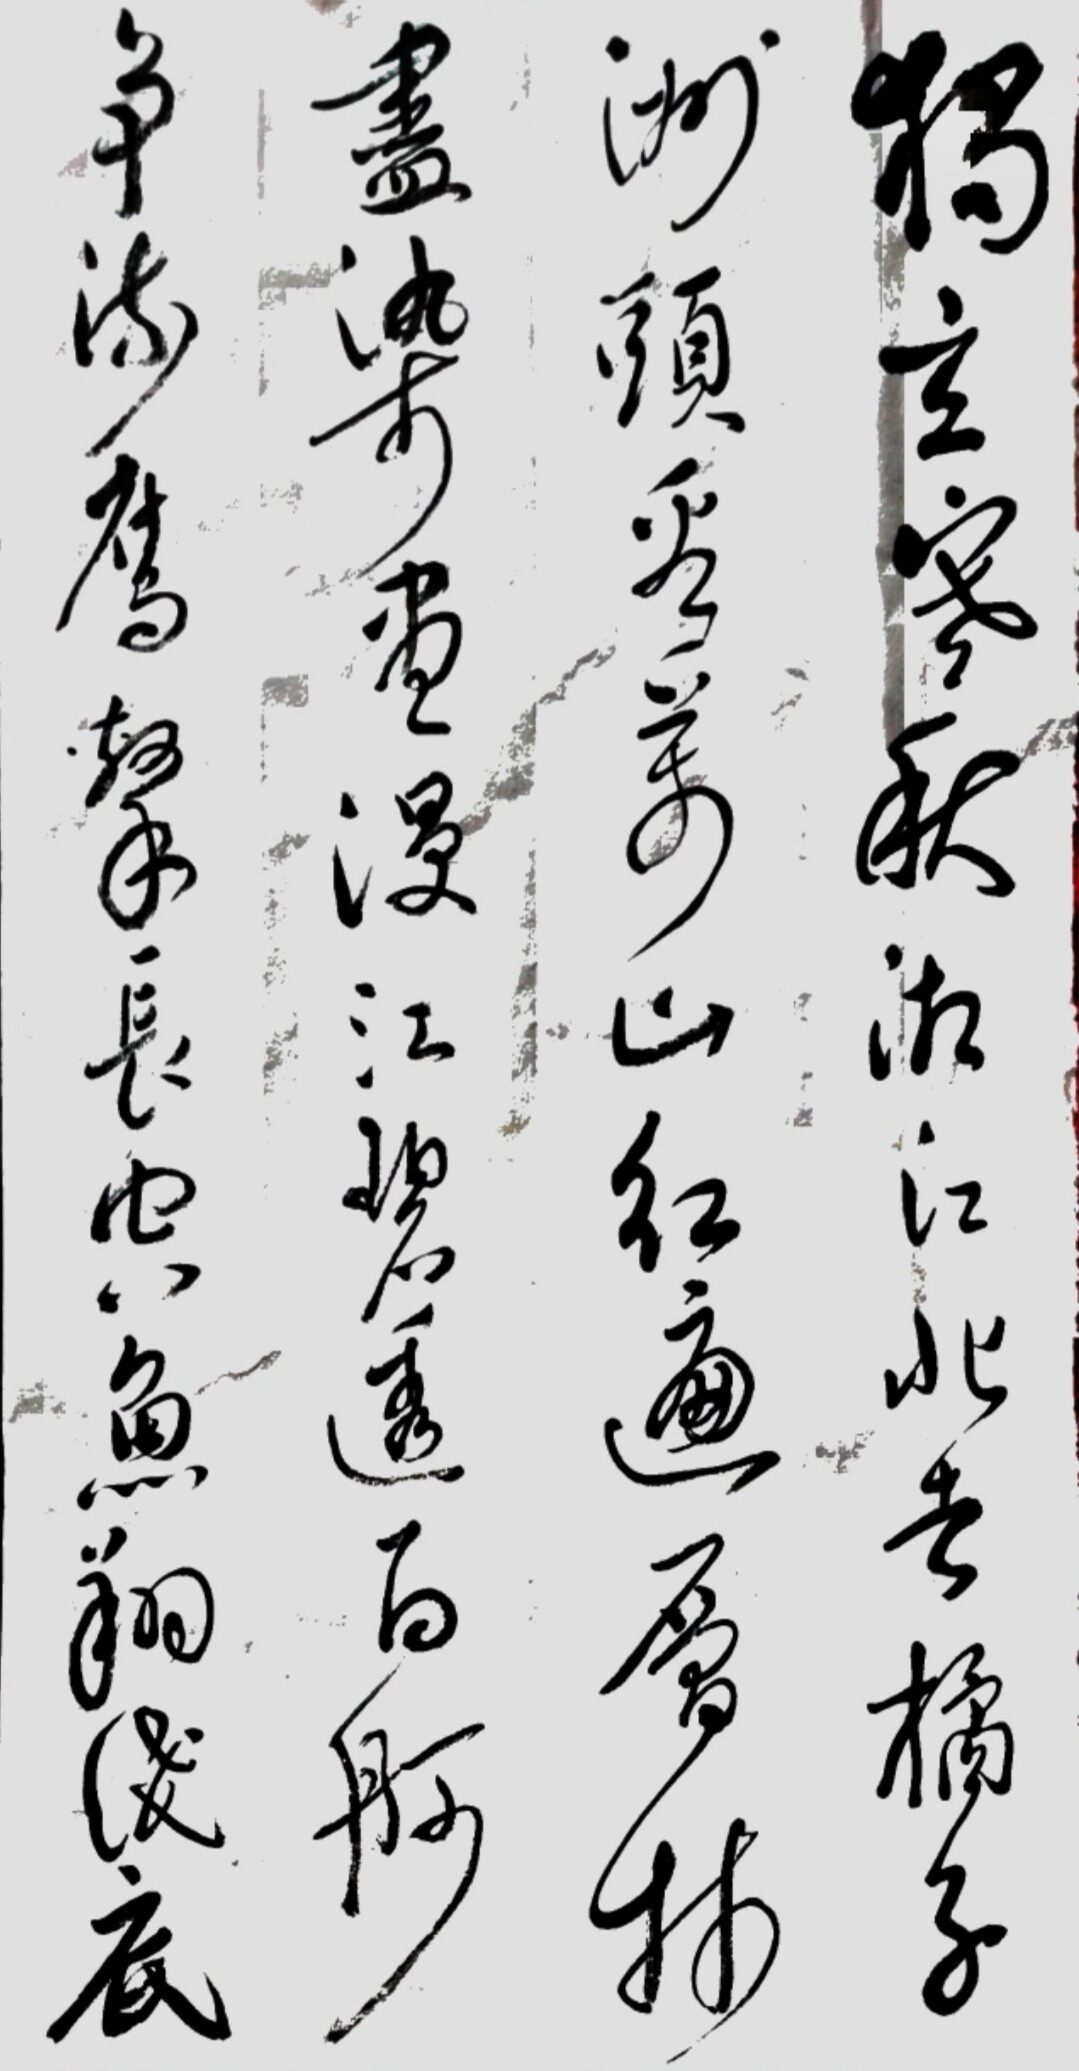 獨立寒秋湘江北去橘子
洲頭看萬山紅遍層林
盡染漫江碧透百舸
争流鷹擊長空魚翔淺底